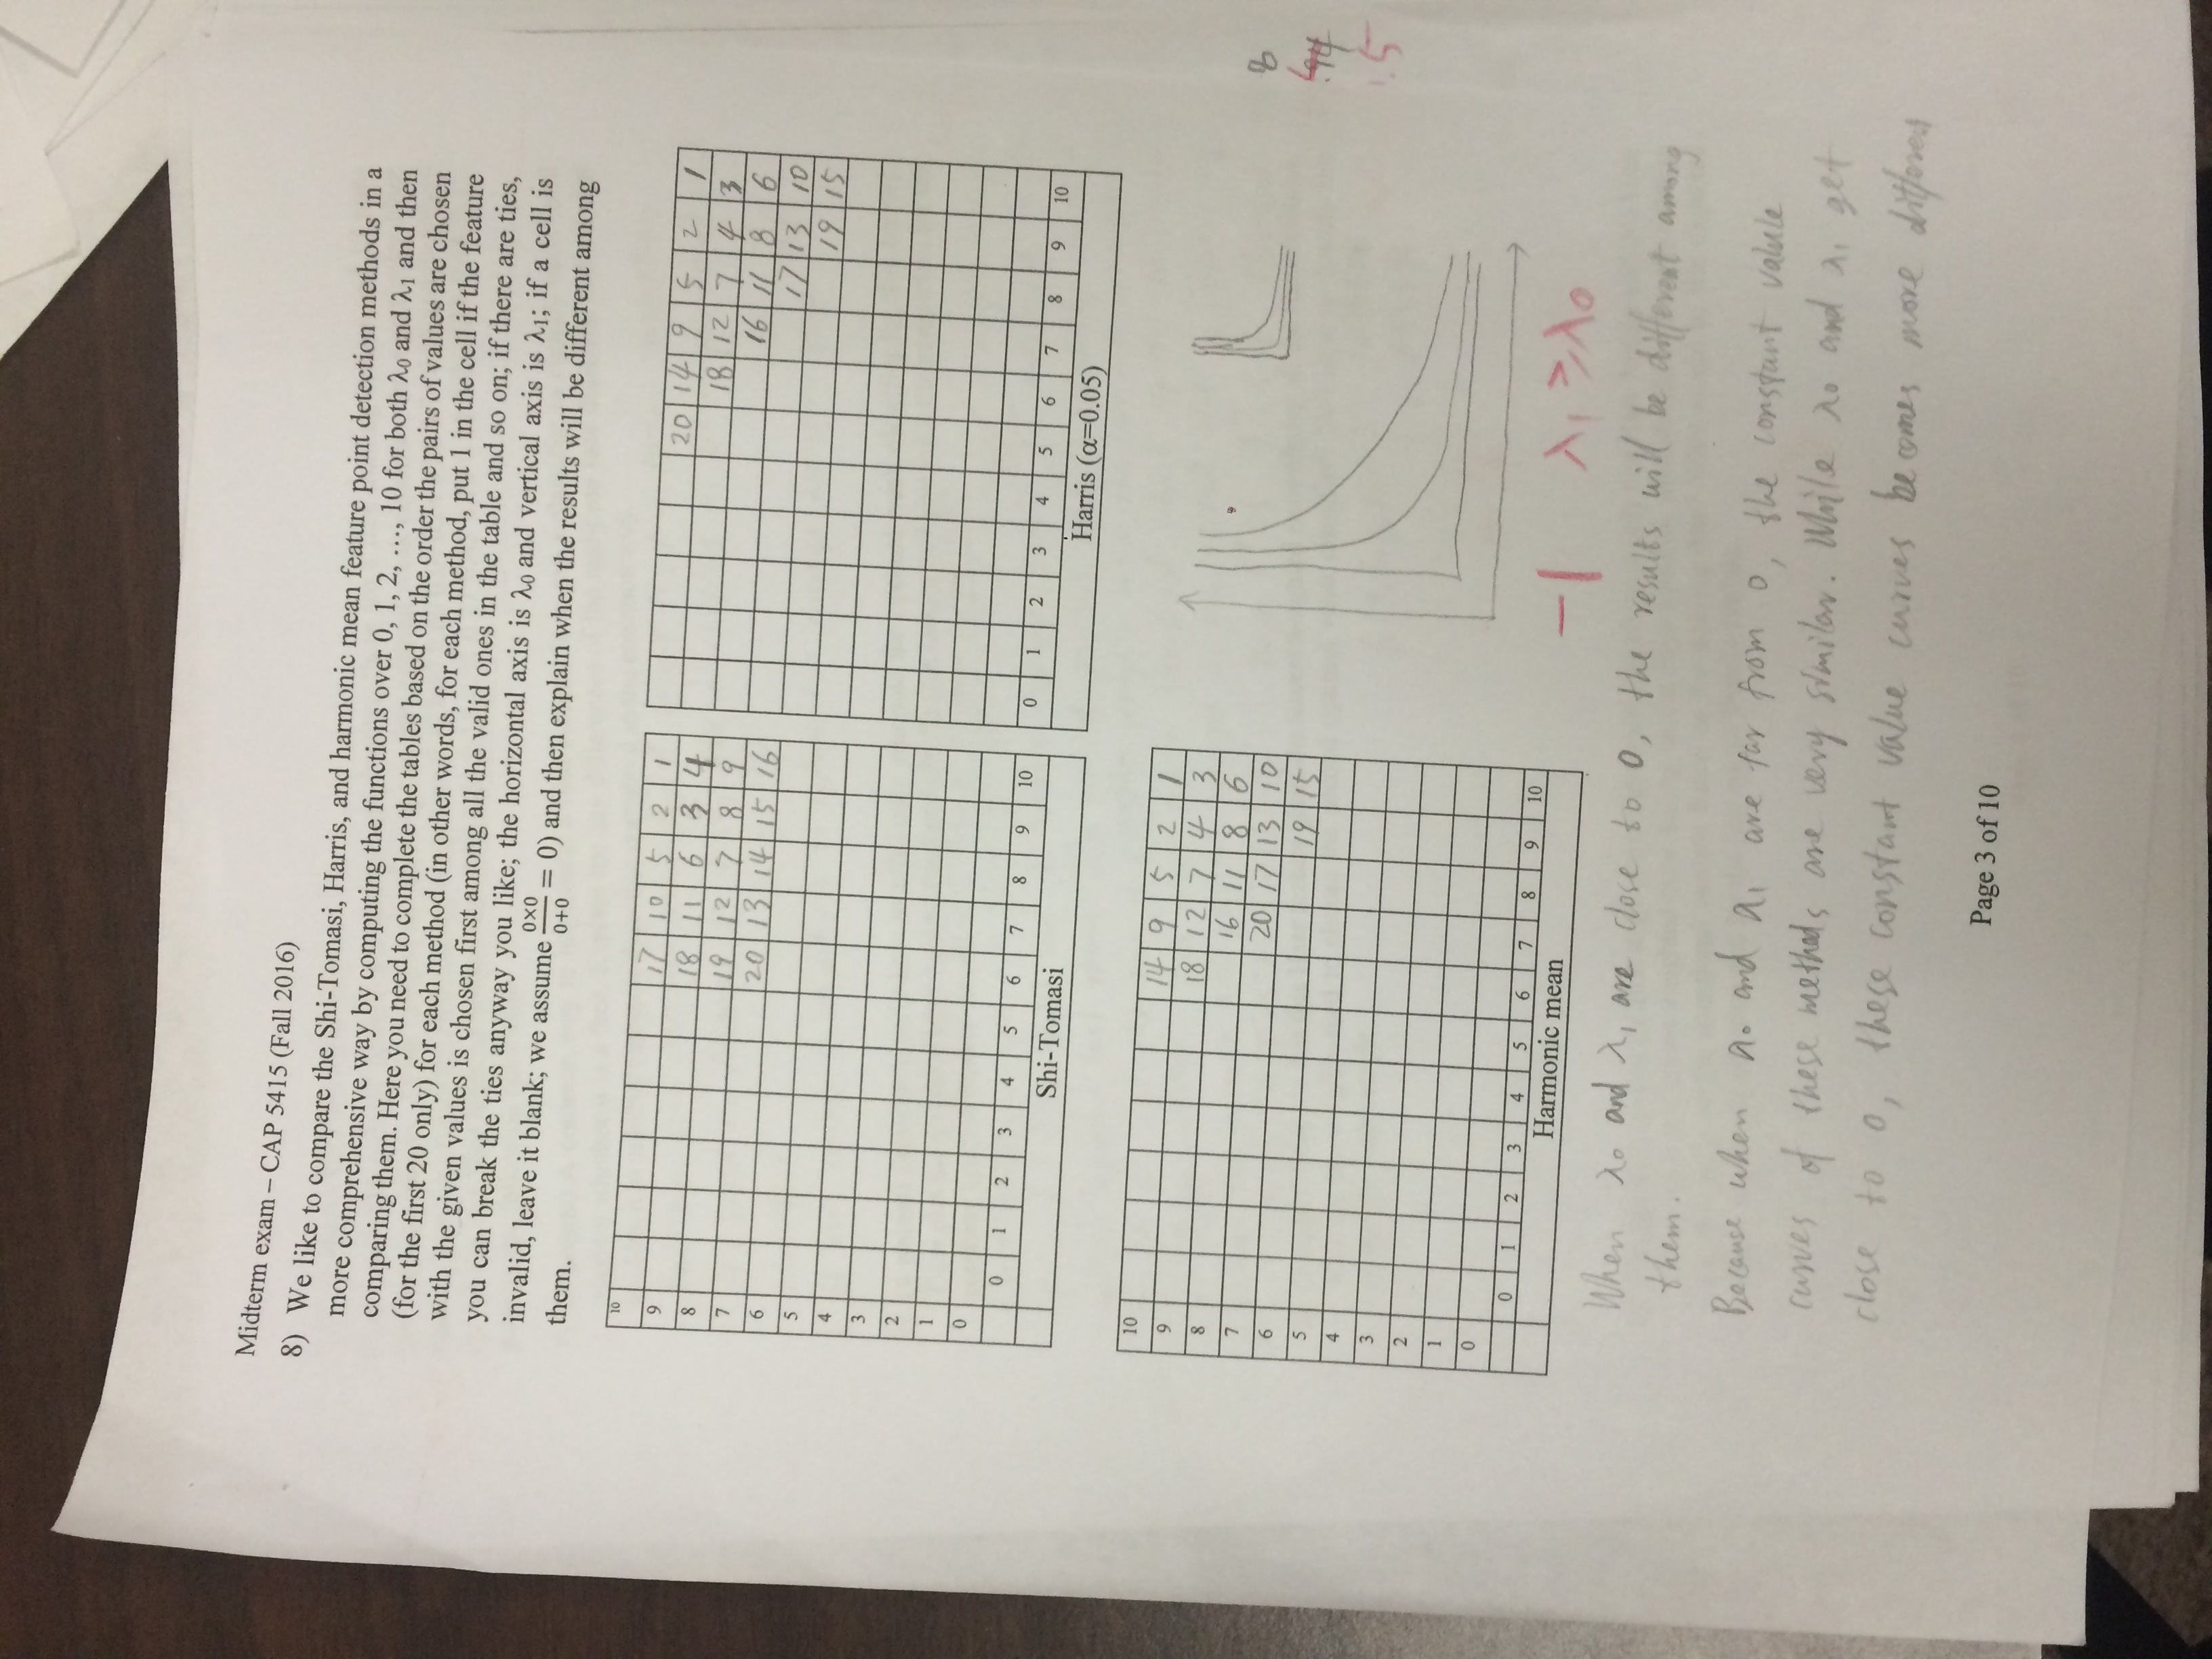 Midterm exam – CAP 5415 (Fall 2016)
8) We like to compare the Shi-Tomasi, Harris, and harmonic mean feature point detection methods in a
more comprehensive way by computing the functions over 0, 1, 2, …, 10 for both λ0 and λ1 and then
comparing them. Here you need to complete the tables based on the order the pairs of values are chosen
(for the first 20 only) for each method (in other words, for each method, put 1 in the cell if the feature
with the given values is chosen first among all the valid ones in the table and so on; if there are ties,
you can break the ties anyway you like; the horizontal axis is λ0 and vertical axis is λ1; if a cell is
invalid, leave it blank; we assume 0×0/0+0 = 0) and then explain when the results will be different among
them.
10 17 10 5 2 1
9 18 11 6 3 4
8 19 12 7 8 9
7 20 13 14 15 16
6
5
4
3
2
1
0
0 1 2 3 4 5 6 7 8 9 10
Shi-Tomasi
20 14 9 5 2 1
18 12 7 4 3
16 11 8 6
17 13 10
19 15
0 1 2 3 4 5 6 7 8 9 10
Harris (α=0.05)
10 14 9 5 2 1
9 18 12 7 4 3
8 16 11 8 6
7 20 17 13 10
6 19 15
5
4
3
2
1
0
0 1 2 3 4 5 6 7 8 9 10
Harmonic mean
8
.5
-1 λ1 ≥ λ0
When λ0 and λ1 are close to 0, the results will be different among
them.
Because when λ0 and λ1 are far from 0, the constant value
curves of these methods are very similar. While λ0 and λ1 get
close to 0, these constant value curves becomes more different
Page 3 of 10